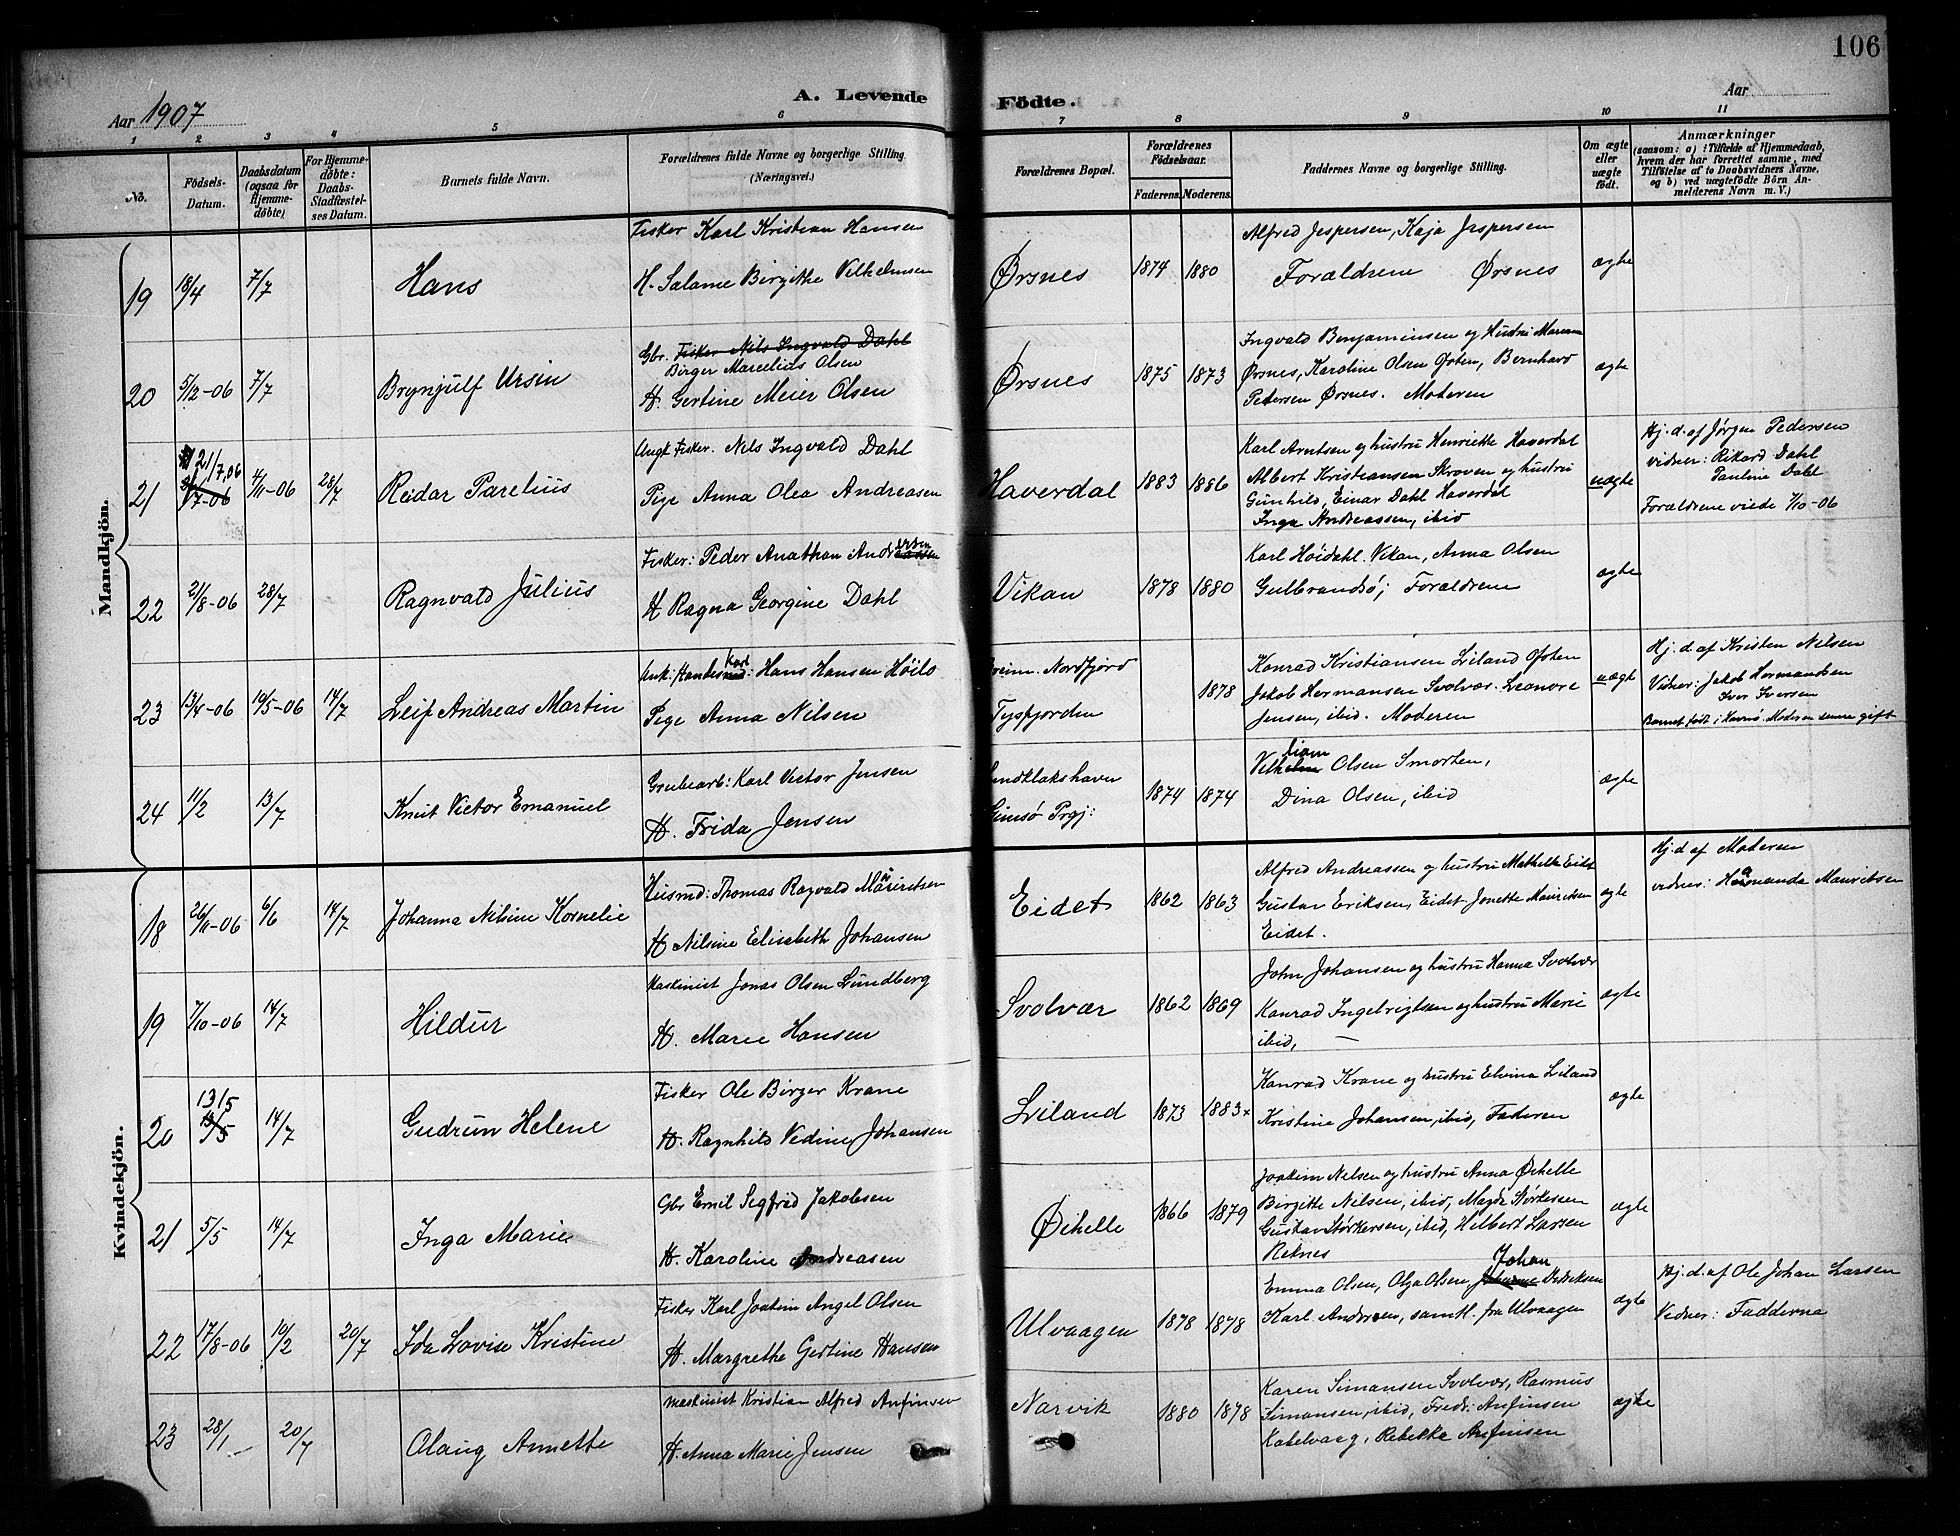 106
Aar 1907
A. Levende Födte.
Aar
1 2 3 4 5 6 7 8 9 10 11
No.
Födsels-Datum.
Daabsdatum (ogsaa for Hjemme-döbte)
For Hjemme-döbte: Daabs-Stadfæstel-ses Datum.
Barnets fulde Navn.
Forældrenes fulde Navne og borgerlige Stilling. (Næringsvei.)
Forældrenes Bopæl.
Forældrenes Födselsaar.
Faderens. Moderens.
Faddernes Navne og borgerlige Stilling.
Om ægte eller uægte födt.
Anmærkninger
(saasom: a) i Tilfælde af Hjemmedaab, hvem der har forrettet samme, med Tilföielse af to Daabsvidners Navne, og b) ved uægtefödte Börn An-melderens Navn m. V.)
Mandkjön.
19 18/4 7/7 Hans
Fisker Karl Kristian Hansen
H. Salame Birgithe Vilhelmsen
Ørsnes 1874 1880
Alfred Jespersen, Kaja Jespersen
Forældrene Ørsnes
ægte
20 5/12-06 7/7 Brynjulf Ursin
Gbr. Fisker Nils Ingvald Dahl
Birger Marcelius Olsen
H. Gertine Meier Olsen
Ørsnes 1875 1873
Ingvald Benjaminsen og Hustru
Ørsnes, Karoline Olsen Bernhard
Petersen Ørsnes. Moderen
ægte
21 21/7,06 4/11-06 28/7 Reidar Parelius
Ungk. Fisker. Nils Ingvald Dahl
Pige Anna Olea Andreasen
Haverdal 1883 1886
Karl Arntsen og hustru Henrikke Haverdal
Albert Kristiansen Skroven og hustru
Gunhild, Einar Dahl Haverdal
Inga Andreassen, ibid
uægte
Hj. d. af Jørgen Pedersen
vidner: Rikard Dahl
Pauline Dahl
Forældrene viede 7/10-06
22 21/8-06 28/7 Ragnvald Julius
Fisker: Peder Anathan Andersen
H Ragna Georgine Dahl
Vikan 1878 1880
Karl Høidahl. Vikan, Anna Olsen
Gulbrandsø; Forældrene
ægte
23 13/4-06 10/5-06 14/7 Leif Andreas Martin
Hans Hansen Høilo
Pige Anna Nilsen
Breim. Nordfjord
Tysfjorden 1878
Konrad Kristiansen Liland
Jakob Hermansen Svolvær. Leonore
Jensen, ibid. Moderen
uægte
Hj. d. af Kristen Nelsen
Vidner: Jakob Hermandsen
Iver Iversen
Barnet født i Moderen senere gift
24 11/2 13/7 Knut Victor Emanuel
Grubearb: Karl Victor Jensen
H. Frida Jensen
Sundklakshavn
Gimsø Prgj: 1874 1874
Olsen Smorten,
Dina Olsen, ibid
ægte
Kvindekjön.
18 26/11-06 6/6 14/7 Johanna Nilsine Kornelie
Husmd: Thomas Ragvald Mauritsen
H Nilsine Elisebeth Johansen
Eidet 1862 1863
Alfred Andreassen og hustru Mathilde Eidet
Gustav Eriksen, Eidet Jonette Mauritsen
Eidet.
ægte
Hj. d af Moderen
vidner: Hermanda Mauritsen
19 7/10-06 14/7 Hildur
Maskinist Jonas Olsen Lundberg
H. Marie Hansen
Svolvær 1862 1869
John Johansen og hustru Hanna Svolvær
Konrad Ingebrigtsen og hustru Marie
ibid, —
ægte
20 13/5 14/7 Gudrun Helene
Fisker Ole Birger Krane
H. Ragnhild Vedine Johansen
Liland 1873 1883x
Konrad Krane og hustru Elvina Liland
Kristine Johansen, ibid, Faderen
ægte
21 5/5 14/7 Inga Marie
Gbr Emil Segfred Jakobsen
H. Karoline Andreasen
Øihelle 1866 1879
Joakim Nelsen og hustru Anna Øihelle
Birgitte Nilsen, ibid, Magda Størkersen
Gustav Størkersen, ibid, Hilbert Larsen
Reknes
ægte
22 17/8-06 10/2 20/7 Ida Lovise Kristine
Fisker Karl Joakim Angel Olsen
H. Margrethe Gertine Hansen
Ulvaagen 1878 1878
Emma Olsen, Olga Olsen, Johan Didriksen
Karl Andersen, samtl. fra Ulvaagen
ægte
Hj. d. af Ole Johan Larsen
Vedner: Fadderne
23 28/1 20/7 Olaug Annette
Maskinist Kristian Alfred Anfinsen
H. Anna Marie Jensen
Narvik 1880 1878
Karen Simonsen Svolvær, Rasmus
Simonsen, ibid, Fredr: Anfinsen
Kabelvaag, Rebekka Anfinsen
ægte